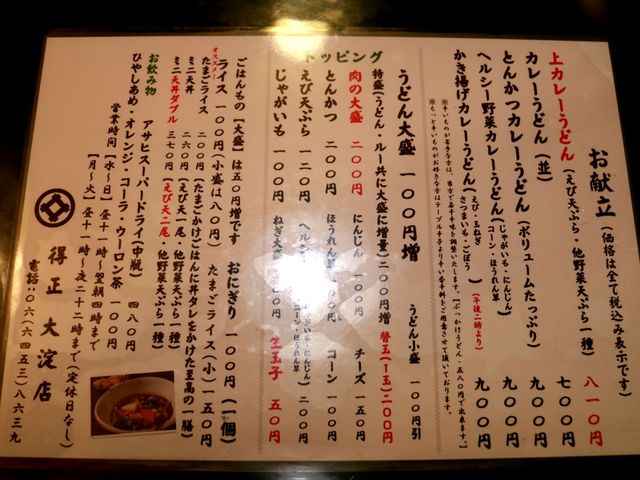 お献立（価格は全て税込み表示です）
上カレーうどん（えび天ぷら・他野菜天ぷら一種） 八一〇円
カレーうどん（並） 七〇〇円
とんかつカレーうどん（ボリュームたっぷり） 九〇〇円
ヘルシー野菜カレーうどん（じゃがいも・にんじん コーン・ほうれん草） 九〇〇円
かき揚げカレーうどん（えび・玉ねぎ さつまいも・ごぼう）（午後二時より） 九〇〇円
トッピング
うどん大盛 一〇〇円増 うどん小盛 一〇〇円引
特盛（うどん・ルー共に大盛に増量）二〇〇円増 替玉（１玉）二〇〇円
肉の大盛 二〇〇円 にんじん 一〇〇円 チーズ 一五〇円
とんかつ 二〇〇円 ほうれん草 一〇〇円 コーン 一〇〇円
えび天ぷら 一〇〇円
じゃがいも 一〇〇円 ねぎ大盛 生玉子 五〇円
ごはんもの【大盛】は五〇円増です おにぎり 一〇〇円（一個）
ライス 一〇〇円（小盛は八〇円） たまごライス（小）一五〇円
オススメ
たまごライス 二〇〇円（たまごかけごはんに丼タレをかけた至高の一膳）
ミニ天丼 二六〇円（えび天一尾・他野菜天ぷら一種）
ミニ天丼ダブル 三七〇円（えび天二尾・他野菜天ぷら一種）
お飲み物 アサヒスーパードライ（中瓶） 四八〇円
ひやしあめ・オレンジ・コーラ・ウーロン茶 一〇〇円
営業時間 ［水〜日］昼十一時〜翌朝四時まで
［月〜火］昼十一時〜夜二十二時まで（定休日なし）
得正 大淀店
電話：〇六（六四五三）八六三九